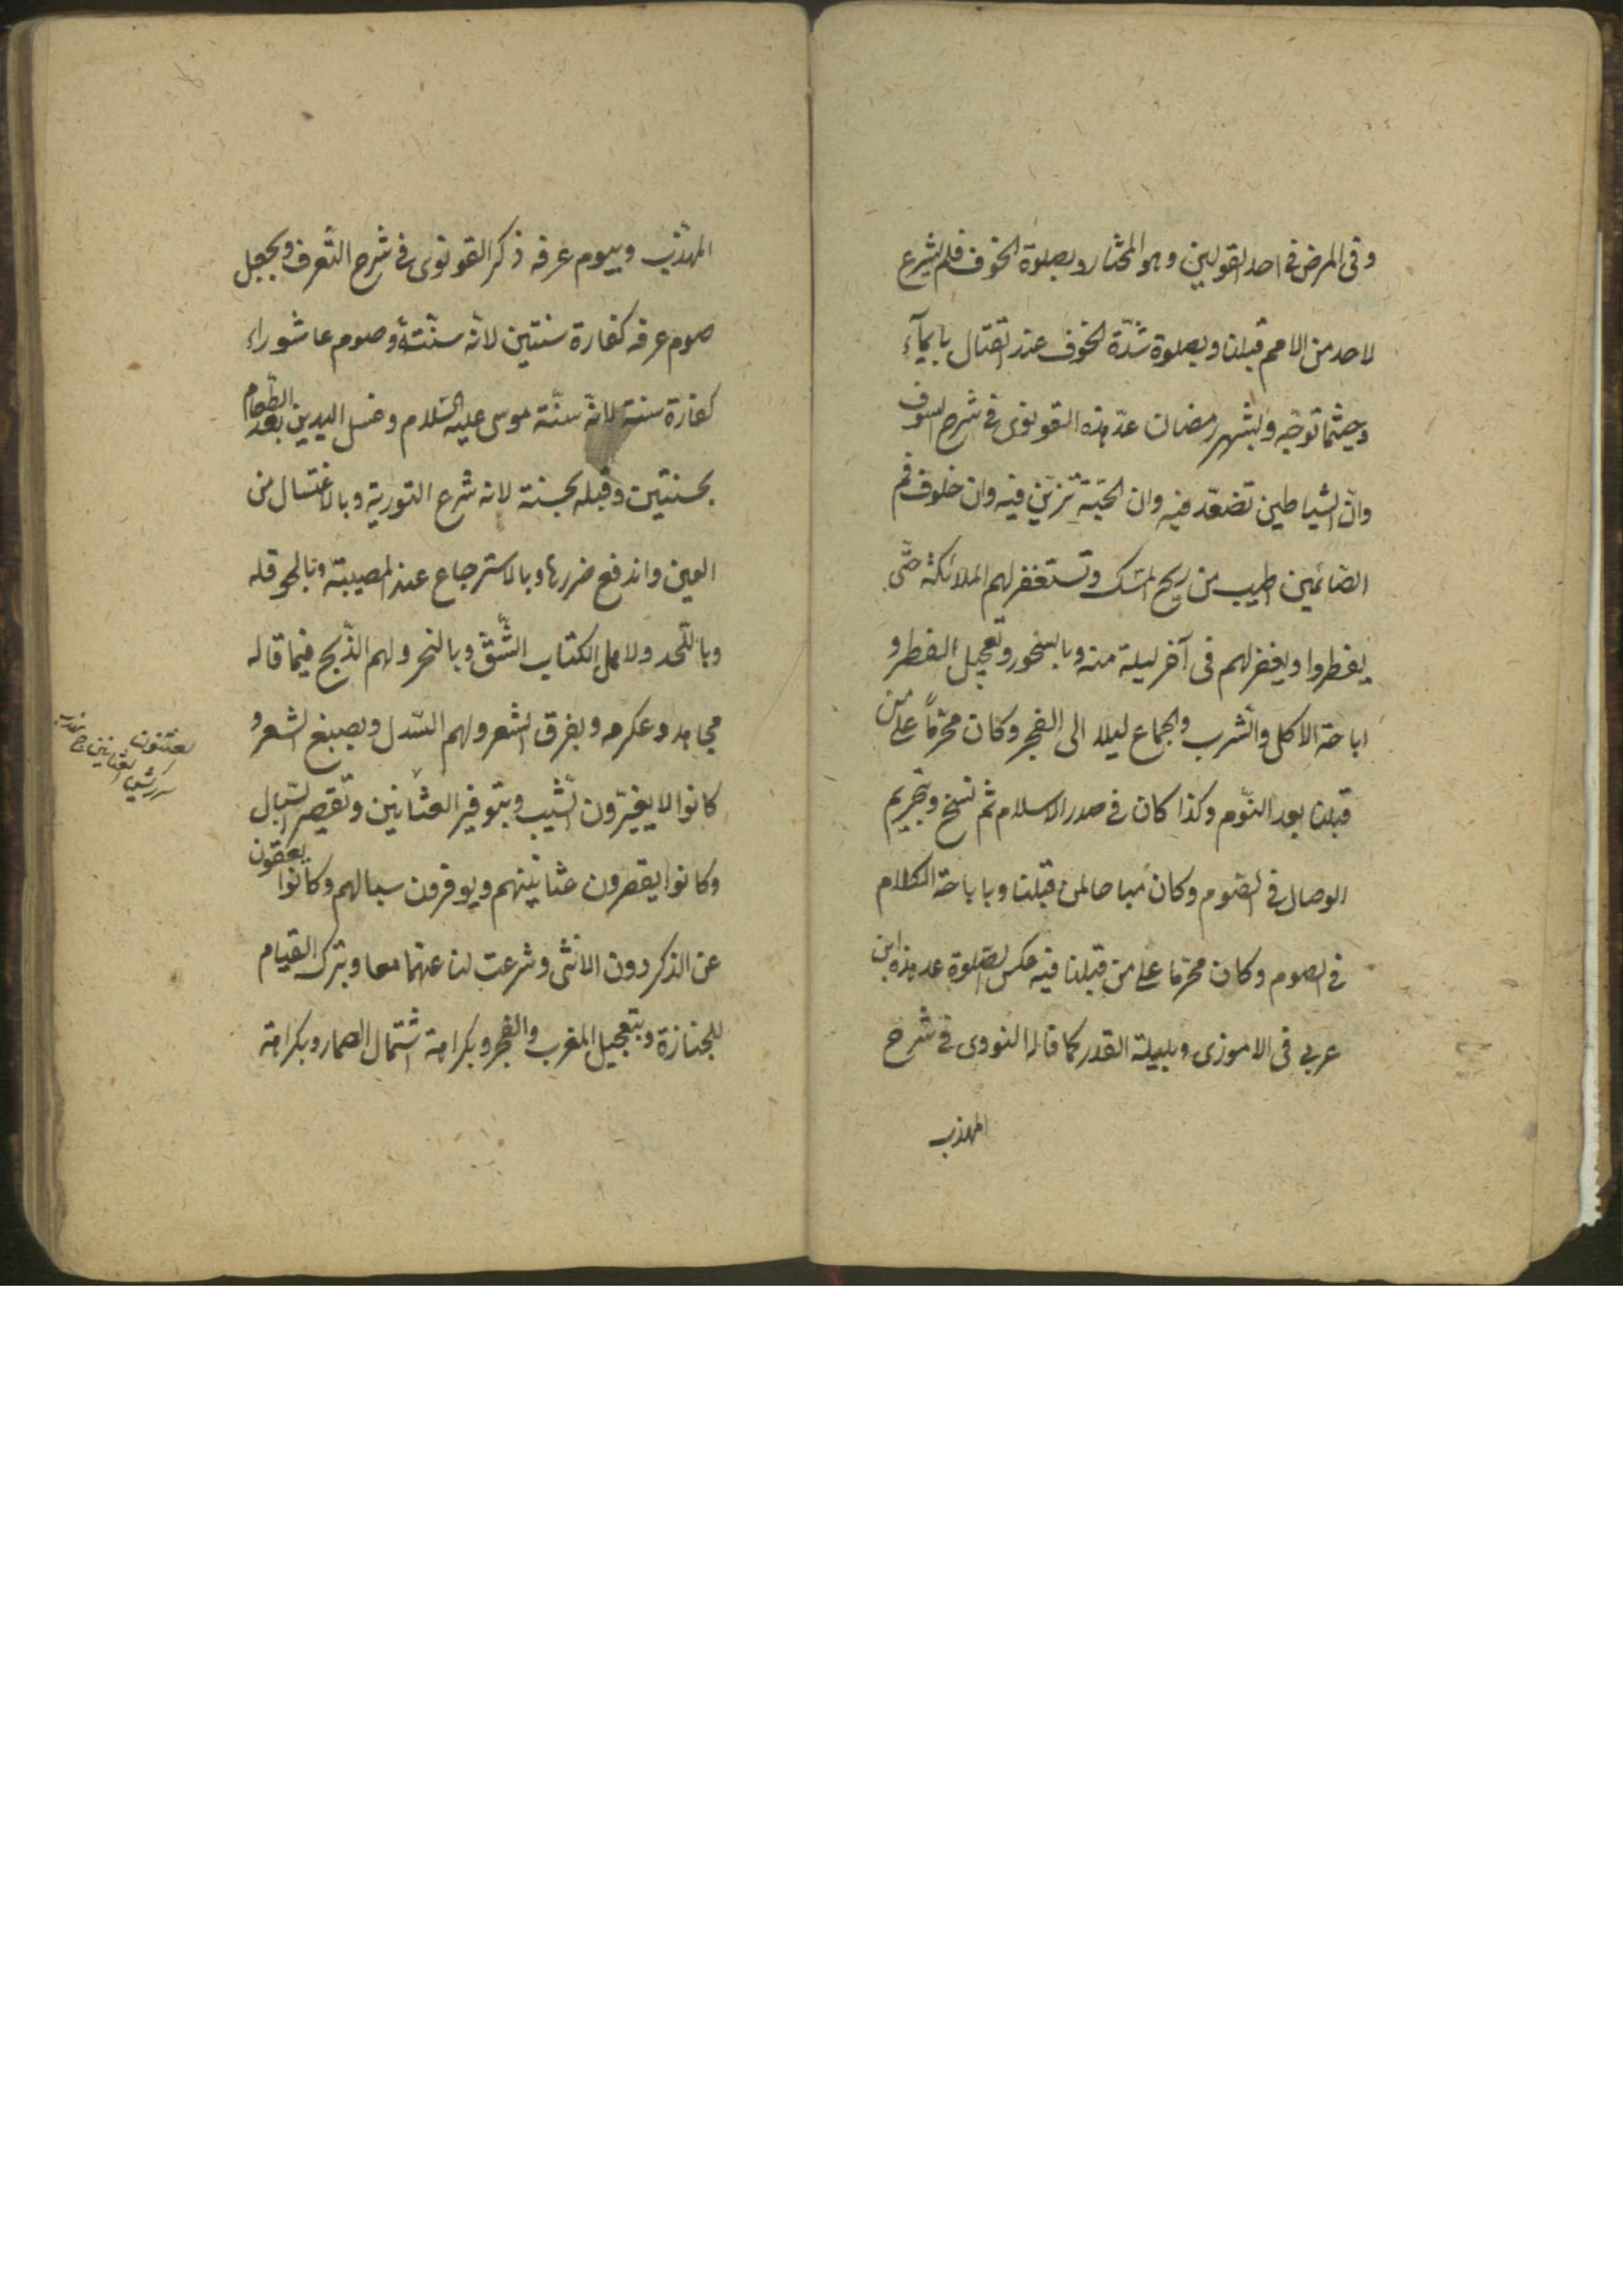 وفى المرض فى احد القولين وهو المختار وبصلوة الخوف فلم يشرع
لاحد من الامم قبلنا وبصلوة شدّة الخوف عند القتال بايمآء
وحيثما توجّه وبشهر رمضان عدّ هذه القونوى فى شرح
وانّ الشياطين تصفّد فيه وان الجنّة تزيّن فيه وان خلوف فم
الصّائمين اطيب من ريح المسك وتستغفر لهم الملائكة حتّى
يفطروا ويغفر لهم فى آخر ليلة منه وبالسحور وتعجيل الفطر و
اباحة الاكل والشرب والجماع ليلا الى الفجر وكان محرّماً على من
قبلنا بعد النّوم وكذا كان فى صدر الاسلام ثم نسخ وبتحريم
الوصال فى الصّوم وكان مُباحا لمن قبلنا وباباحة الكلام
فى الصوم وكان محرّما على من قبلنا فيه عكس الصّلوة عد هذه ابن
عربى فى الاحوذى وبليلة القدر كما قاله النووى فى شرح
المهذب
المهذّب وبيوم عرفه ذكر القونوى فى شرح التّعرف وبجعل
صوم عرفه كفارة سنتين لانّه سنّته وصوم عاشوراء
كفارة سنة لانّه سنّة موسى عليه السّلام وغسل اليدين بعد الطّعام
بحسنتين وقبله بحسنة لانه شرع التورية وبالاغتسال من
العين واندفع ضررها وبالاسترجاع عند المصيبة وبالحوقله
وباللّحد ولاهل الكتاب الشّقّ وبالنحر ولهم الذّبح فيما قاله
مجاهد وعكرمه وبفرق الشعر ولهم السّدل وبصبغ الشعر و
كانوا لا يغيّرون الشّيب وبتوفير العثانين وتقصير السّبال
وكانوا يقصرون عثانينهم ويوفرون سبالهم وكانوا يعقّون
عن الذكر دون الانثى وشرعت لنا عنهما معا وبترك القيام
للجنازة وبتعجيل المغرب والفجر وبكراهة اشتمال الصمار وبكراهة